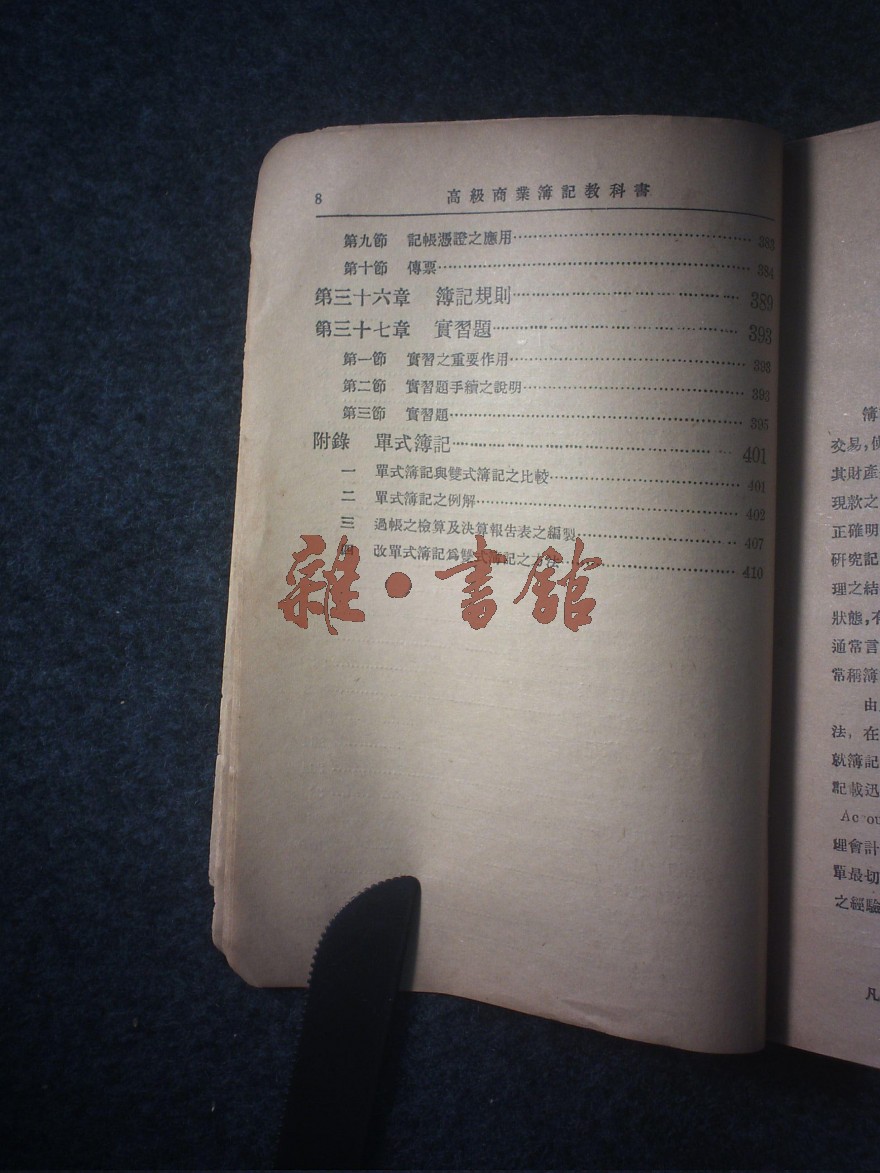 8 高級商業簿記教科書
第九節 記帳憑證之應用 383
第十節 傳票 384
第三十六章 簿記規則 389
第三十七章 實習題 393
第一節 實習之重要作用 393
第二節 實習題手續之說明 393
第三節 實習題 395
附錄 單式簿記 401
一 單式簿記與雙式簿記之比較 401
二 單式簿記之例解 402
三 過帳之檢算及決算報告表之編製 407
四 改單式簿記爲雙式簿記之方法 410
雜·書館
簿
交易,使
其財產
現款之
正確明
研究記
理之結
狀態,有
通常言
常稱簿
由
法,在
就簿記
記載迅
Accou
理會計
單最切
之經驗
凡